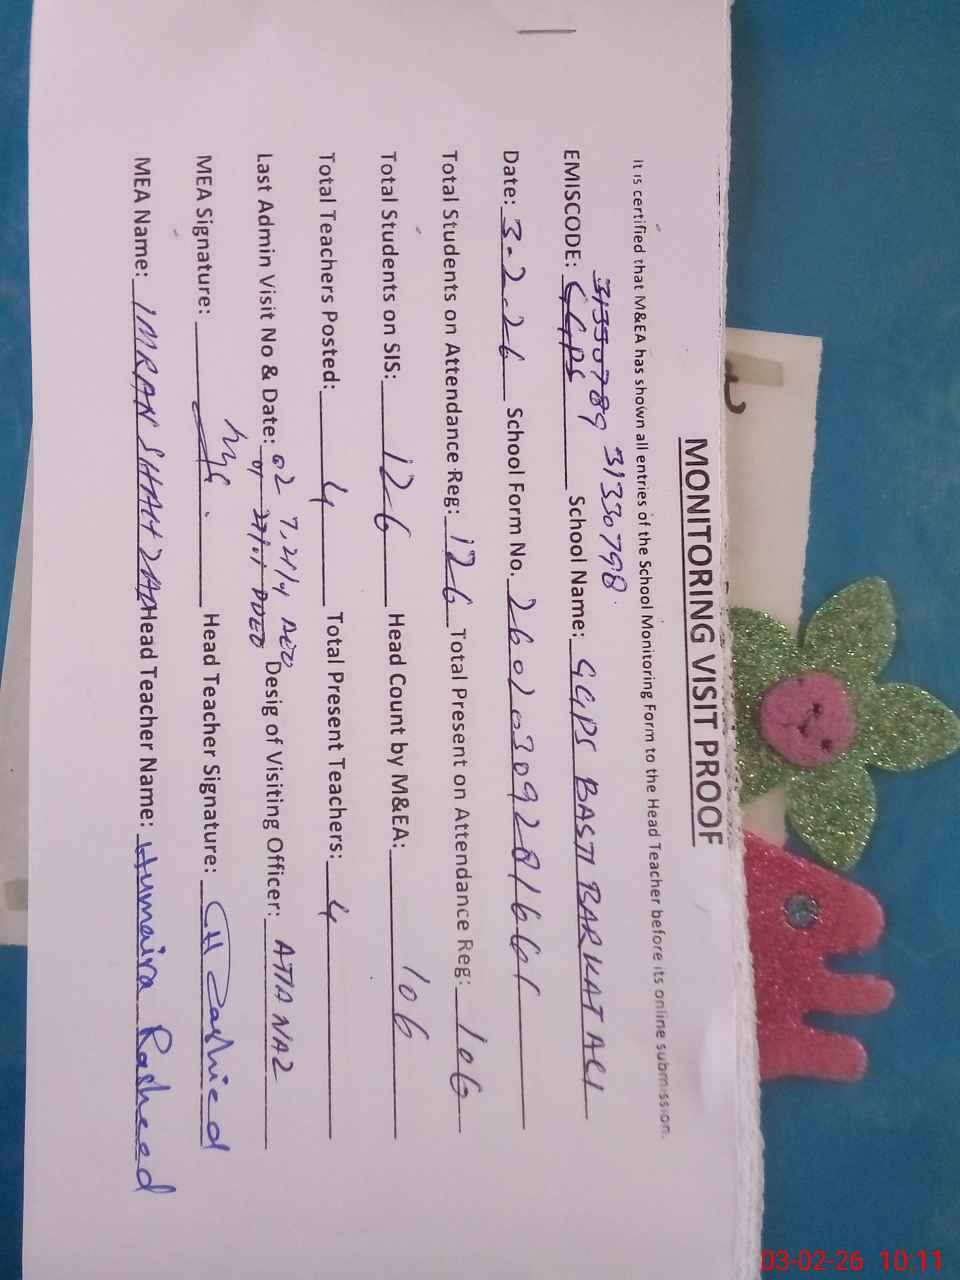 MONITORING VISIT PROOF
It is certified that M&EA has shown all entries of the School Monitoring Form to the Head Teacher before its online submission.
31330789 31330798
EMISCODE: GGPS School Name: GGPS BASTI BARKAT ALI
Date: 3-2-26 School Form No. 260203092816661
Total Students on Attendance Reg: 126 Total Present on Attendance Reg: 106
Total Students on SIS: 126 Head Count by M&EA: 106
Total Teachers Posted: 4 Total Present Teachers: 4
02 AEO
Last Admin Visit No & Date: 01 27/01 DDEO Desig of Visiting Officer: ATTA NAZ
MEA Signature: Head Teacher Signature: H Rasheed
MEA Name: IMRAN SHAHZAD Head Teacher Name: Humaira Rasheed
03-02-26 10:11